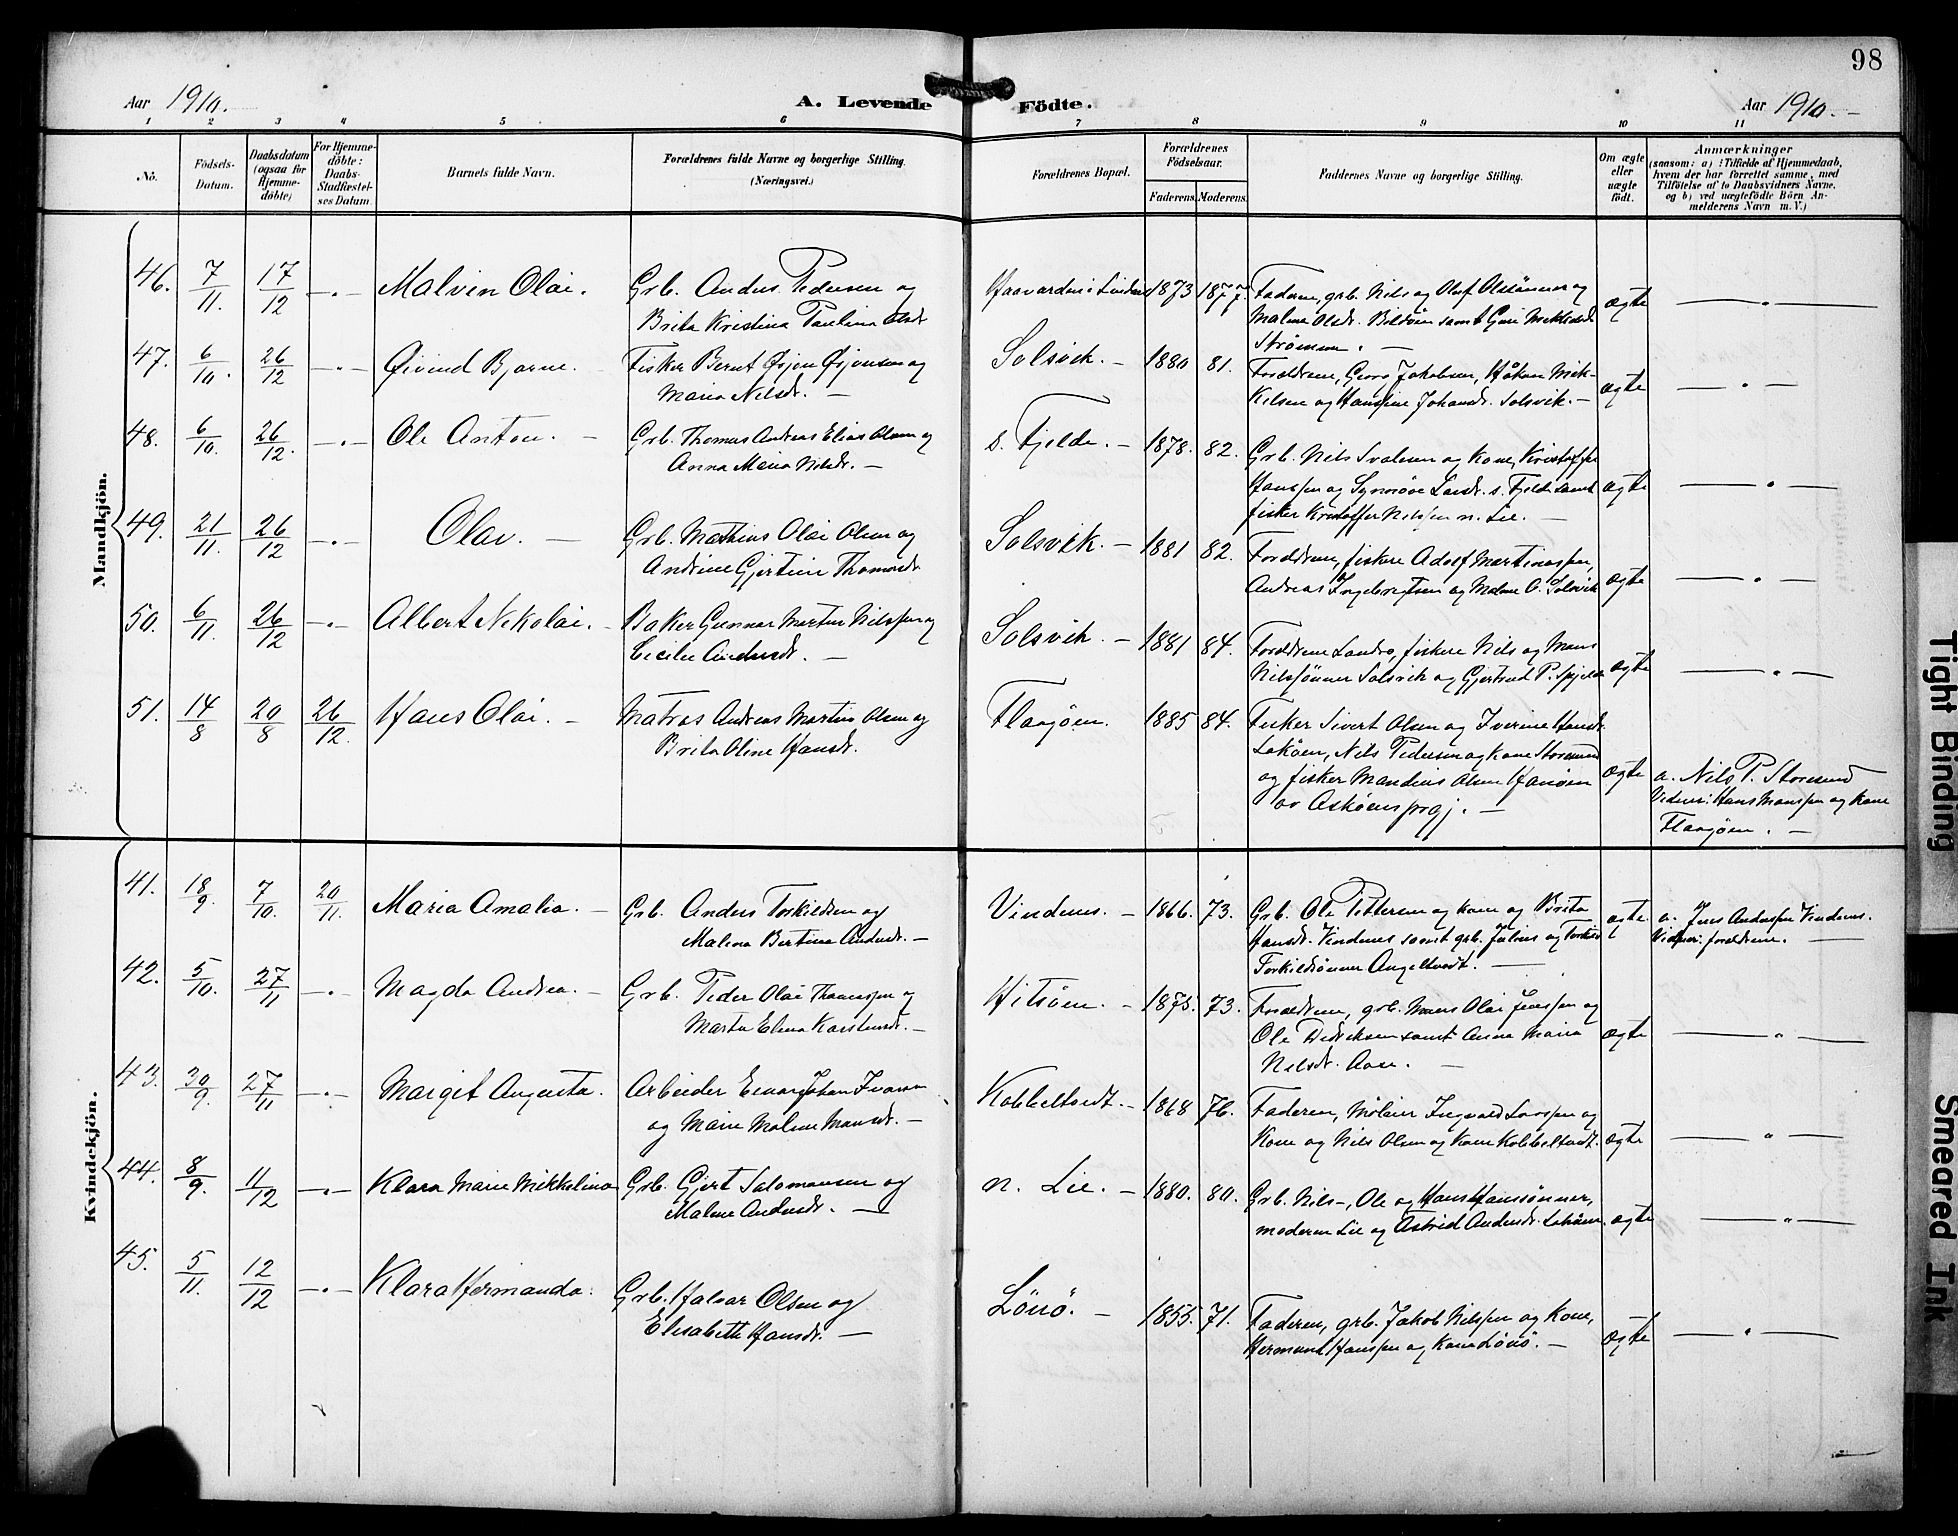 98
Aar 1910.
A. Levende Födte.
Aar 1910.
1 2 3 4 5 6 7 8 9 10 11
No.
Födsels-Datum.
Daabsdatum (ogsaa for Hjemme-döbte)
For Hjemme-döbte: Daabs-Stadfæstel-ses Datum.
Barnets fulde Navn.
Forældrenes fulde Navne og borgerlige Stilling.
(Næringsvei.)
Forældrenes Bopæl.
Forældrenes Födselsaar.
Faderens. Moderens.
Faddernes Navne og borgerlige Stilling.
Om ægte eller uægte födt.
Anmærkninger
(saasom: a) i Tilfælde af Hjemmedaab,
hvem der har forrettet samme, med
Tilföielse af to Daabsvidners Navne,
og b) ved uægtefödte Börn An-
melderens Navn m. V.)
Mandkjön.
46. 7/11. 17/12 Malvin Olai. Grb. Anders Pedersen og
Brita Kristina Paulina Olsdt
1873 1877. Faderen, grb. Nils og Oluf Olssønner og
Malene Olsdr. Bildøen samt Guri Mikkelsdr
Strömmen. ægte
47. 6/10. 26/12 Øivind Bjarne. Fisker Bernt Ørjan Ørjansen og
Maria Nilsdr.
Solsvik. 1880 81. Forældrene, Georg Jakobsen, Håkon Mik-
kelsen og Hansine Johansdr. Solsvik. ægte
48. 6/10. 26/12. Ole Anton. Grb. Thomas Andreas Elias Olsen og
Anna Maria Nilsdr.
s. Fjelde. 1878. 82. Grb. Nils Ivalsen og Kone, Kristoffer
Hanssen og Synnøve Larsdr. s. Fjelde samt
fisker Kristoffer Nilssen n. Lie. ægte
49. 21/11. 26/12 Olav. Grb. Mathias Olai Olsen og
Andrine Gjertine Thomasdr
Solsvik. 1881 82. Forældrene, fiskere Adolf Martinussen,
Andreas Ingebrigtsen og Malene O. Solsvik ægte
50. 6/11. 26/12 Albert Nikolai. Baker Gunnar Martin Nilssen og
Cecilie Andersdr.
Solsvik. 1881 84. Forældrene Landro, fiskere Nils og Mons
Nilssønner Solsvik og Gjertrud P. Spjeld ægte
51. 14/8 20/8 26/12. Hans Olai. Matros Andreas Martin Olsen og
Brita Oline Hansdr.
Flagøen. 1885 84. Fisker Sivert Olsen og Iverine Hansdr.
Lokøen, Nils Pedersen og kone Storesund
og fisker Mandius Olsen Hanøen
av Askøens prgj. ægte
a. Nils P. Storesund
Vidner: Hans Monssen og kone
Flagøen.
Kvindekjön.
41. 18/9. 7/10. 20/11. Maria Amalia. Grb. Anders Torkildsen og
Malena Bertine Andersdr.
Vindenes. 1866. 73. Grb. Ole Pettersen og kone og Brita
Hansdr. Vindenes samt grb. Julius og Torkild
Torkildsønner Angeltvedt. ægte
a. Jens Anderssen Vindenes.
Vidner: forældrene.
42. 5/10. 27/11 Magda Andrea. Grb. Peder Olai Thomassen og
Marta Elena Karstensdr.
Hitsøen. 1875. 73. Forældrene, grb. Mons Olai Jenssen og
Ole Didriksen samt Anna Maria
Nilsdr. ægte
43. 30/9. 27/11 Margit Augusta. Arbeider Einar Johan Ivarsen
og Marie Malene Monsdr.
Kobbeltvedt. 1868 76. Faderen, Mølner Ingvald Larssen og
Kone og Nils Olsen og Kone Kobbeltvedt. ægte
44. 8/9. 11/12 Klara Marie Mikkelina Grb. Gjert Salomonsen og
Malene Andersdr.
n. Lie. 1880. 80. Grb. Nils-, Ole og Hans Hanssønner,
moderen Lie og Astrid Andersdr. Lokøen. ægte
45. 5/11. 12/12 Klara Hermanda. Grb. Halvar Olsen og
Elisabeth Hansdr.
Lönö. 1855. 71. Faderen, grb. Jakob Nilssen og Kone,
Hermund Hanssen og Kone Lönö. ægte
Tight Binding
Smeared Ink